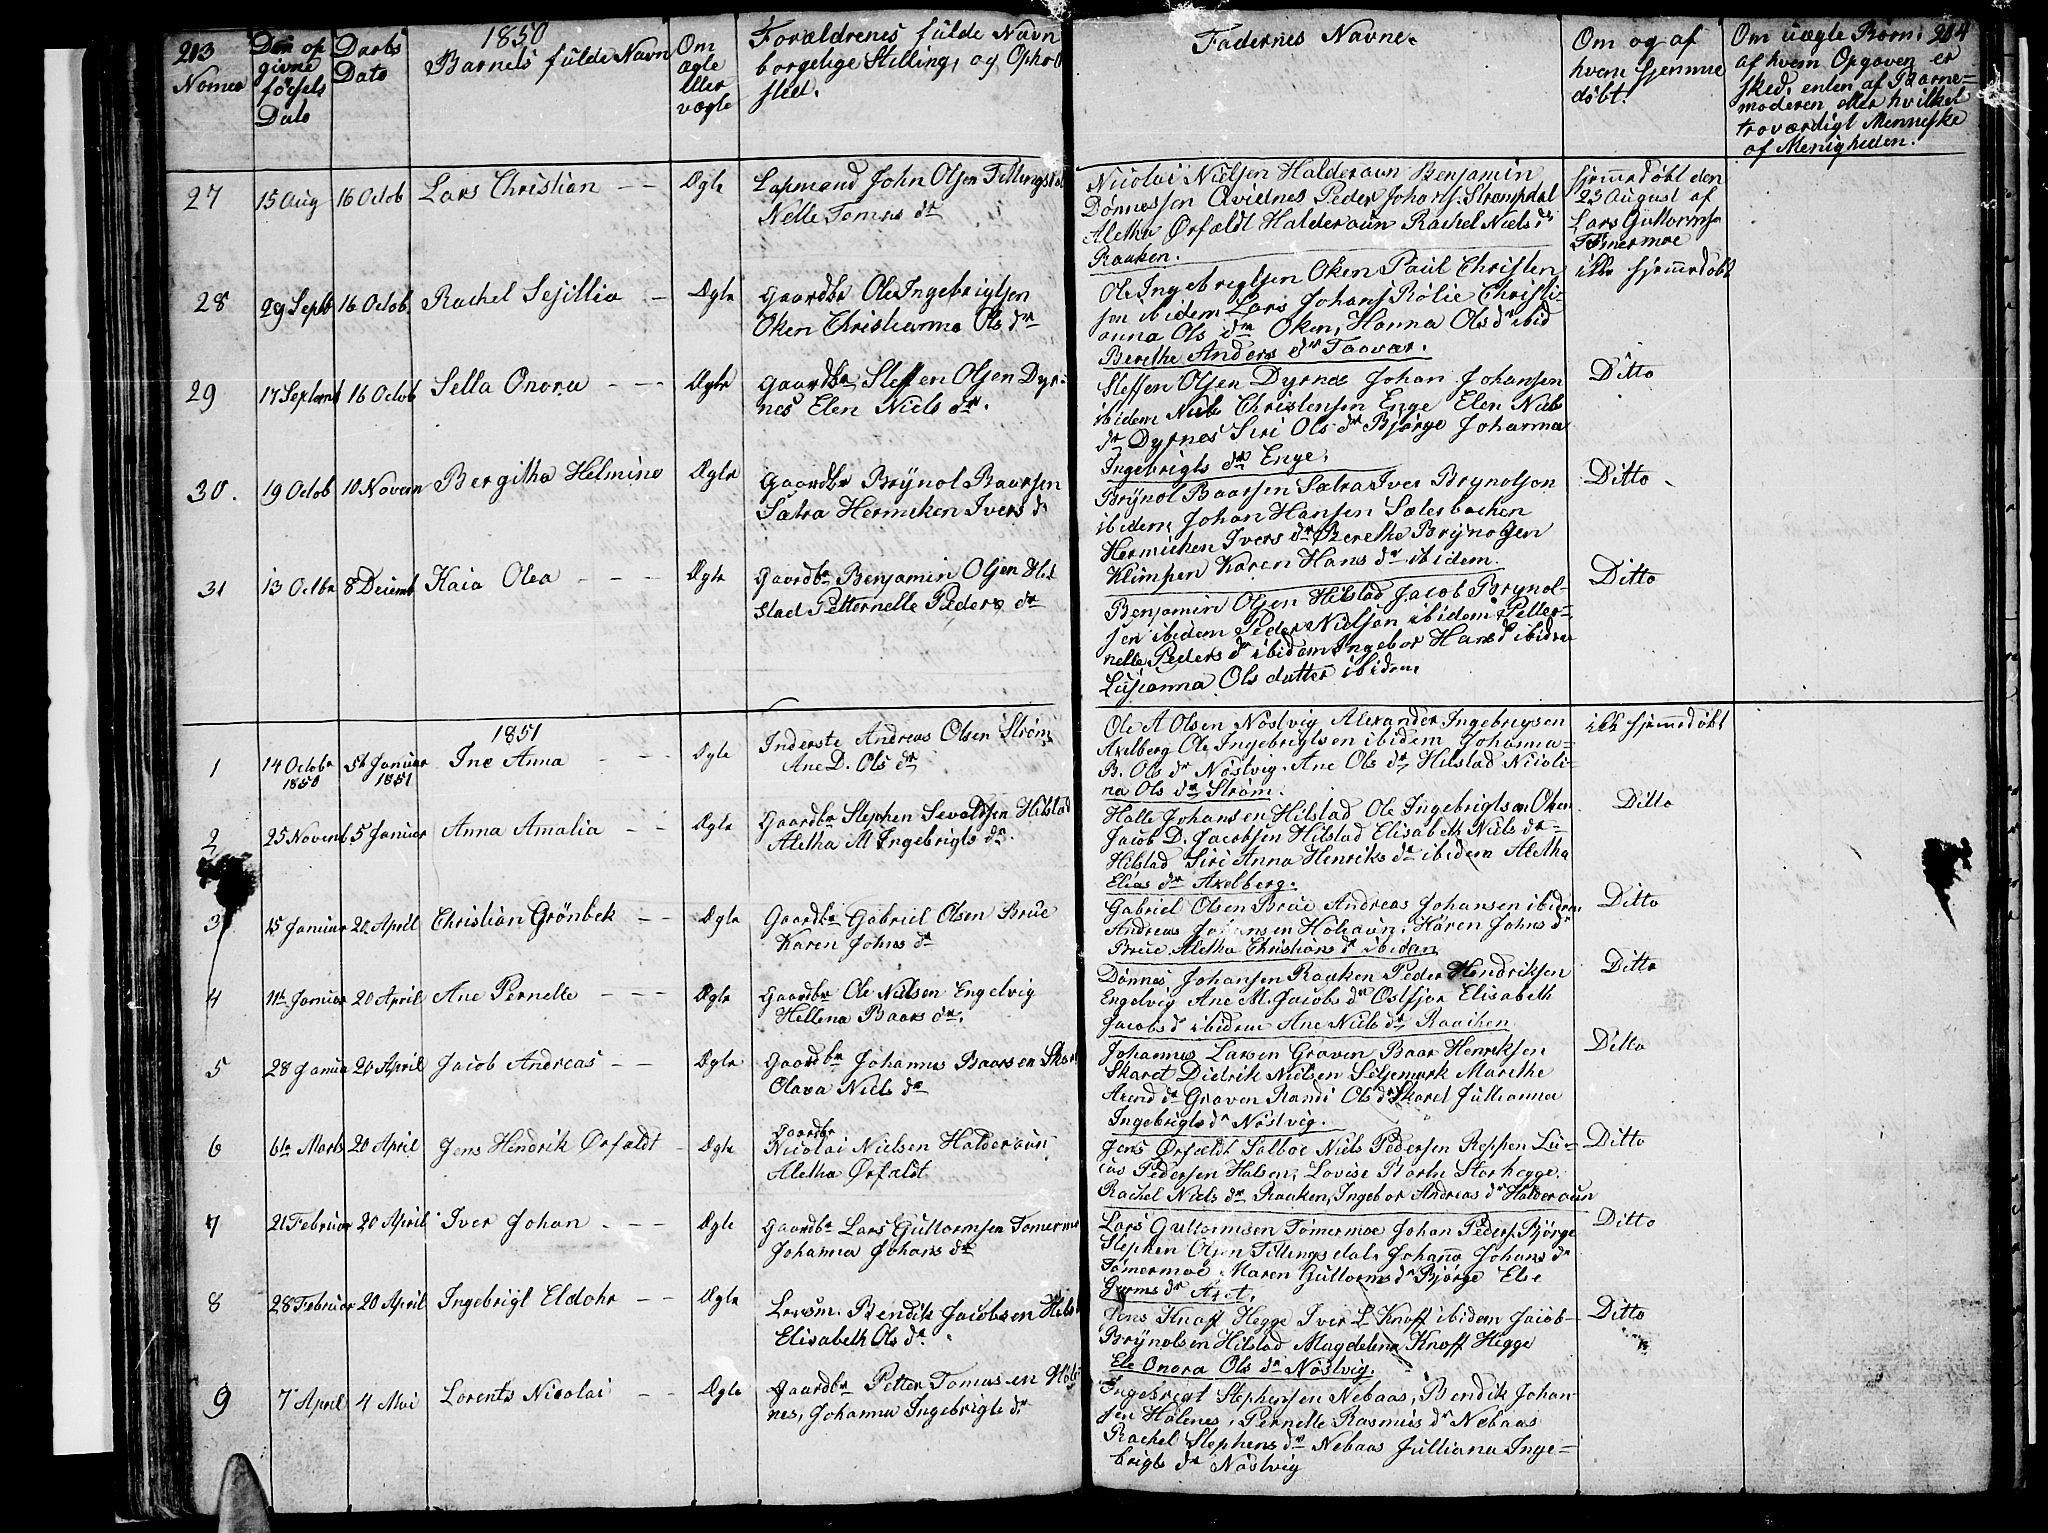 213
Nomer
Den op
givne
føcsels
Dato
Daabs
Dato
1850
Barnets fulde Navn
Om
ægte
eller
uægte
Forældrenes fulde Navn
borgelige Stilling, og Ophold
sted.
Fadernes Navne.
Om og af
hvem hjemme
døbt!
Om uægte Børn, 214
af hvem Opgaven er
sked, enten af Barne-
moderen eller hvilket
troværdigt Menneske
af Menigheden.
27
15 Aug
16 Octob
Lars Christian
Ægte
Lapmand John Olsen Fillingsdal
Nelle Tomas dr
Nicolai Nielsen Halderaun Benjamin
Dønnessen Qvidnes Peder Johans. Strompdal
Aletha Ørfaldt Halderaun Rachel Niels dr
Raaken.
hjemedøbt den
23 August af
Lars Guttormsen
Tømermoe
28
29 Septb
16 Octob.
Rachel Sesillia
Ægte
Gaardbr Ole Ingebrigtsen
Oken Christianna Ols dr
Ole Ingebrigtsen Oken Paul Christen
sen ibidem Lars Johans Rölie Christi-
anna Ols dr Oken, Hanna Ols dr ibid
Berethe Anders dr Taavær.
ikke hjemedøbt
29
17 Septemb
16 Octob
Sella Onora
Ægte
Gaardbr Steffen Olsen Dyr-
nes Elen Niels dr.
Steffen Olsen Dyrnes Johan Johansen
ibidem Niels Christensen Enge Elen Niels
dr Dyrnes Siri Ols dr Bjørge Johanna
Ingebrigts dr Enge.
Ditto
30.
19 Octob
10 Novem
Bergitha Helmine
Ægte
Gaardbr Brynol Baarsen
Satra Hermiken Ivers dr
Brynol Baarsen Sætra Iver Brynolsen
ibidem Johan Hansen Sælesbachen
Hermichen Ivers dr Berethe Brynolsen
Klimpen Karen Hans dr ibidem.
Ditto
31
13 Octbr
8 Decemb
Kaia Olea
Ægte
Gaardbr Benjamin Olsen Hil
stad Petternelle Peders dr
Benjamin Olsen Hilstad Jacob Brynol-
sen ibidem Peder Nielsen ibidem Petter-
nelle Peders dr ibidem Ingebor Hans dr ibidem
Lusianna Ols datter ibidem.
Ditto
1851
1
14 Octobr
1850
5te Januar
1851
Ine Anna
Ægte
Inderste Andreas Olsen Strøm
Ane D. Ols dr
Ole A Olsen Nöstvig Alexander Ingebrigtsen
Axelberg Ole Ingebrigtsen ibidem Johanna
B. Ols dr Nöstvig. Ane Ols dr Hilstad Nicoli-
na Ols dr Strøm.
ikke hjemedøbt
2
25 Novemb.
5 Januar
Anna Amalia
Ægte
Gaardbr Stephen Sevaldsen Hilstad
Aletha M Ingebrigts dr.
Halle Johansen Hilstad Ole Ingebrigtsen Oken.
Jacob D. Jacobsen Hilstad Elisabeth Niels dr
Hilstad Siri Anna Henriks dr ibidem Aletha
Elias dr Axelberg.
Ditto
3
15 Januar
20 April
Christian Grönbek
Ægte
Gaardbr Gabriel Olsen Brue
Karen Johns dr
Gabriel Olsen Brue Andreas Johansen ibidem
Andreas Johansen Holraun. Karen Johns dr
Brue Aletha Christians dr ibidem
Ditto
4
11te Januar
20 April
Ane Pernelle
Ægte
Gaardbr Ole Nielsen Engelvig
Hellena Baars dr.
Dønnes Johansen Raaken Peder Hendriksen
Engelvig Ane M. Jacobs dr Ostfjor Elisabeth
Jacobs d ibidem Ane Niels dr Raaken
Ditto
5
28 Janua
20 April
Jacob Andreas
Ægte
Gaardbr Johannes Baarsen Skaret
Olava Niels dr
Johannes Larsen Graven Baar Henriksen
Skaret Didrik Nielsen Seljemark Marethe
Arend dr Graven Randi Ols dr Skaret Jullianna
Ingebrigts dr Nöstvig.
Ditto
6
6te Marts
20 April
Jens Hendrik Ørfaldt
Ægte
Gaardbr
Nicolai Nielsen Halderaun
Aletha Ørfaldt
Jens Ørfaldt Salboe Niels Pedersen Reppen Lu-
cas Pedersen Halsen, Lovise Barbr Storhegge.
Rachel Niels dr Raaken, Ingebor Andreas dr Halderaun
Ditto
7
21 Februar
20 April
Iver Johan
Ægte
Gaardbr Lars Guttormsen Tomermo
Johanna Johans dr
Lars Guttormsen Tömermoe Johan Peders. Bjørge
Stephen Olsen Fillingsdal. Johana Johans dr
Tömermoe Maren Guttorms dr Bjørge Else
Gurms dr Aret.
Ditto
8
28 Februar
20 April
Ingebrigt Eldohr
Ægte
Bendik Jacobsen Hilst
Elisabeth Ols dr
Jens Knoff Hegge Iver L Knoff ibidem Jacob
Brynolsen Hilstad Magdelena Knoff Hegge
Ele Onora Ols dr Nöstvig.
Ditto
9
7 April
4 Mai
Lorents Nicolai
Ægte
Gaardbr Petter Tomasen Höle
nes, Johanna Ingebrigts dr
Ingebrigt Stephensen Nebaas, Bendik Johan
sen Hölenes, Pernelle Rasmus dr Nebaas
Rachel Stephens dr Nebaas Julliana Inge-
brigts dr Nöstvig